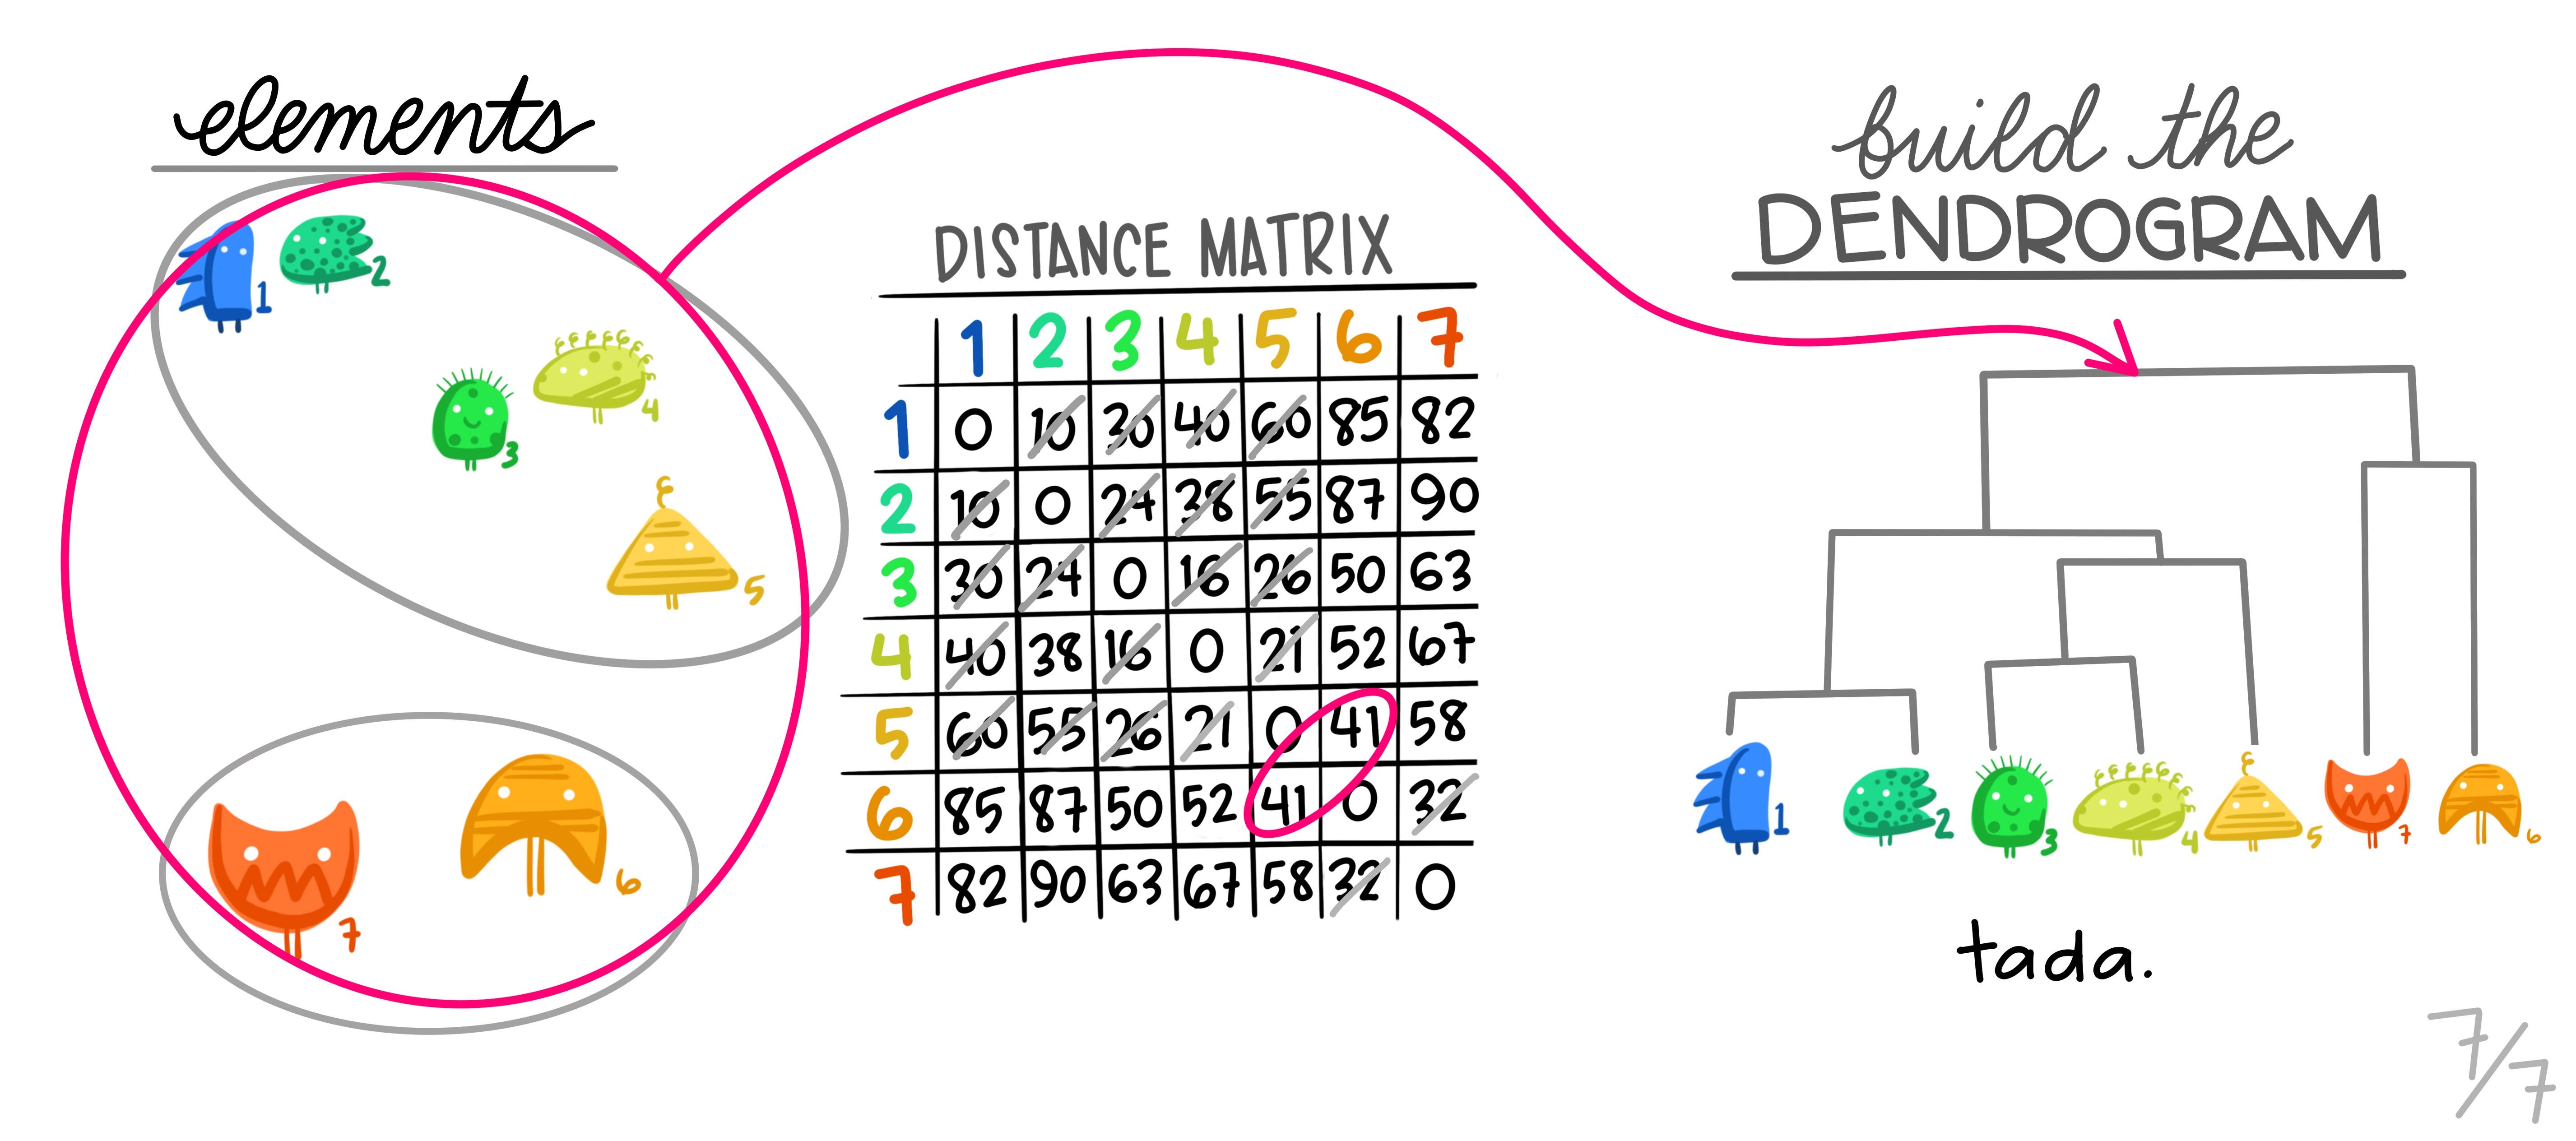 elements
1
2
3
4
5
7
6
DISTANCE MATRIX
1 2 3 4 5 6 7
1 0 10 30 40 60 85 82
2 10 0 24 38 55 87 90
3 30 24 0 16 26 50 63
4 40 38 16 0 21 52 67
5 60 55 26 21 0 41 58
6 85 87 50 52 41 0 32
7 82 90 63 67 58 32 0
build the
DENDROGRAM
1 2 3 4 5 7 6
tada.
7/7